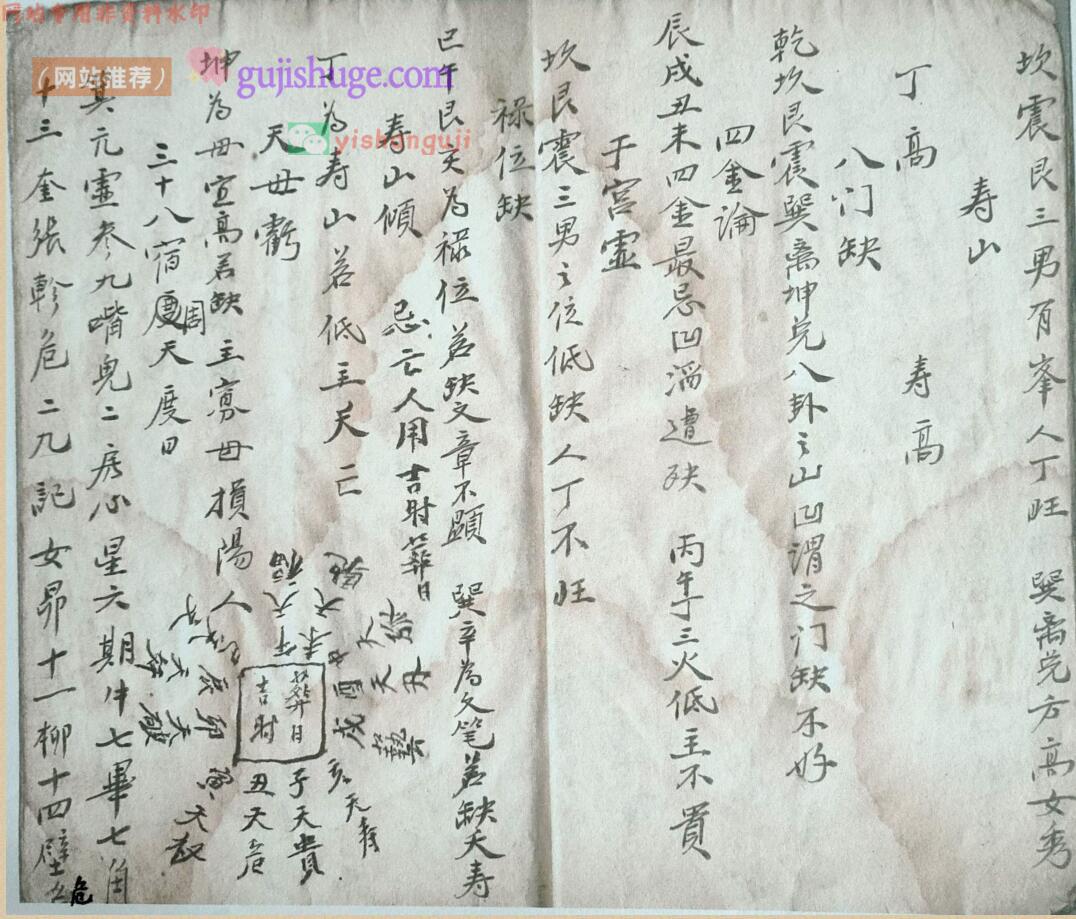 坎震艮三男有峯人丁旺 巽离兑方高女秀
寿山
丁高 寿高
八门缺
乾坎艮震巽离坤兑八卦之山凹谓之门缺不好
四金論
辰戌丑未四金最忌凹 遭 丙午丁三火低主不貴
子宫虚
坎艮震三男之位低缺人丁不旺
祿位缺
巳午艮亥为祿位若缺文章不顕 巽辛为文笔若缺夭寿
寿山傾 忌亡人用吉时葬日
丁为寿山若低主夭亡
天毋虧
坤为毋宜高若缺主寡毋損陽人
三十八宿周天度日
箕元壷参九嘴鬼二房心星六期 七畢七角
十三奎張軫危二九記女昴十一柳十四壁
危
葬日
吉时
子天貴
丑天危
寅天
卯天敗
亥天寿
戌
酉天
午天福
网站专用非资料水印
(网站推荐)
gujishuge.com
yishanguji